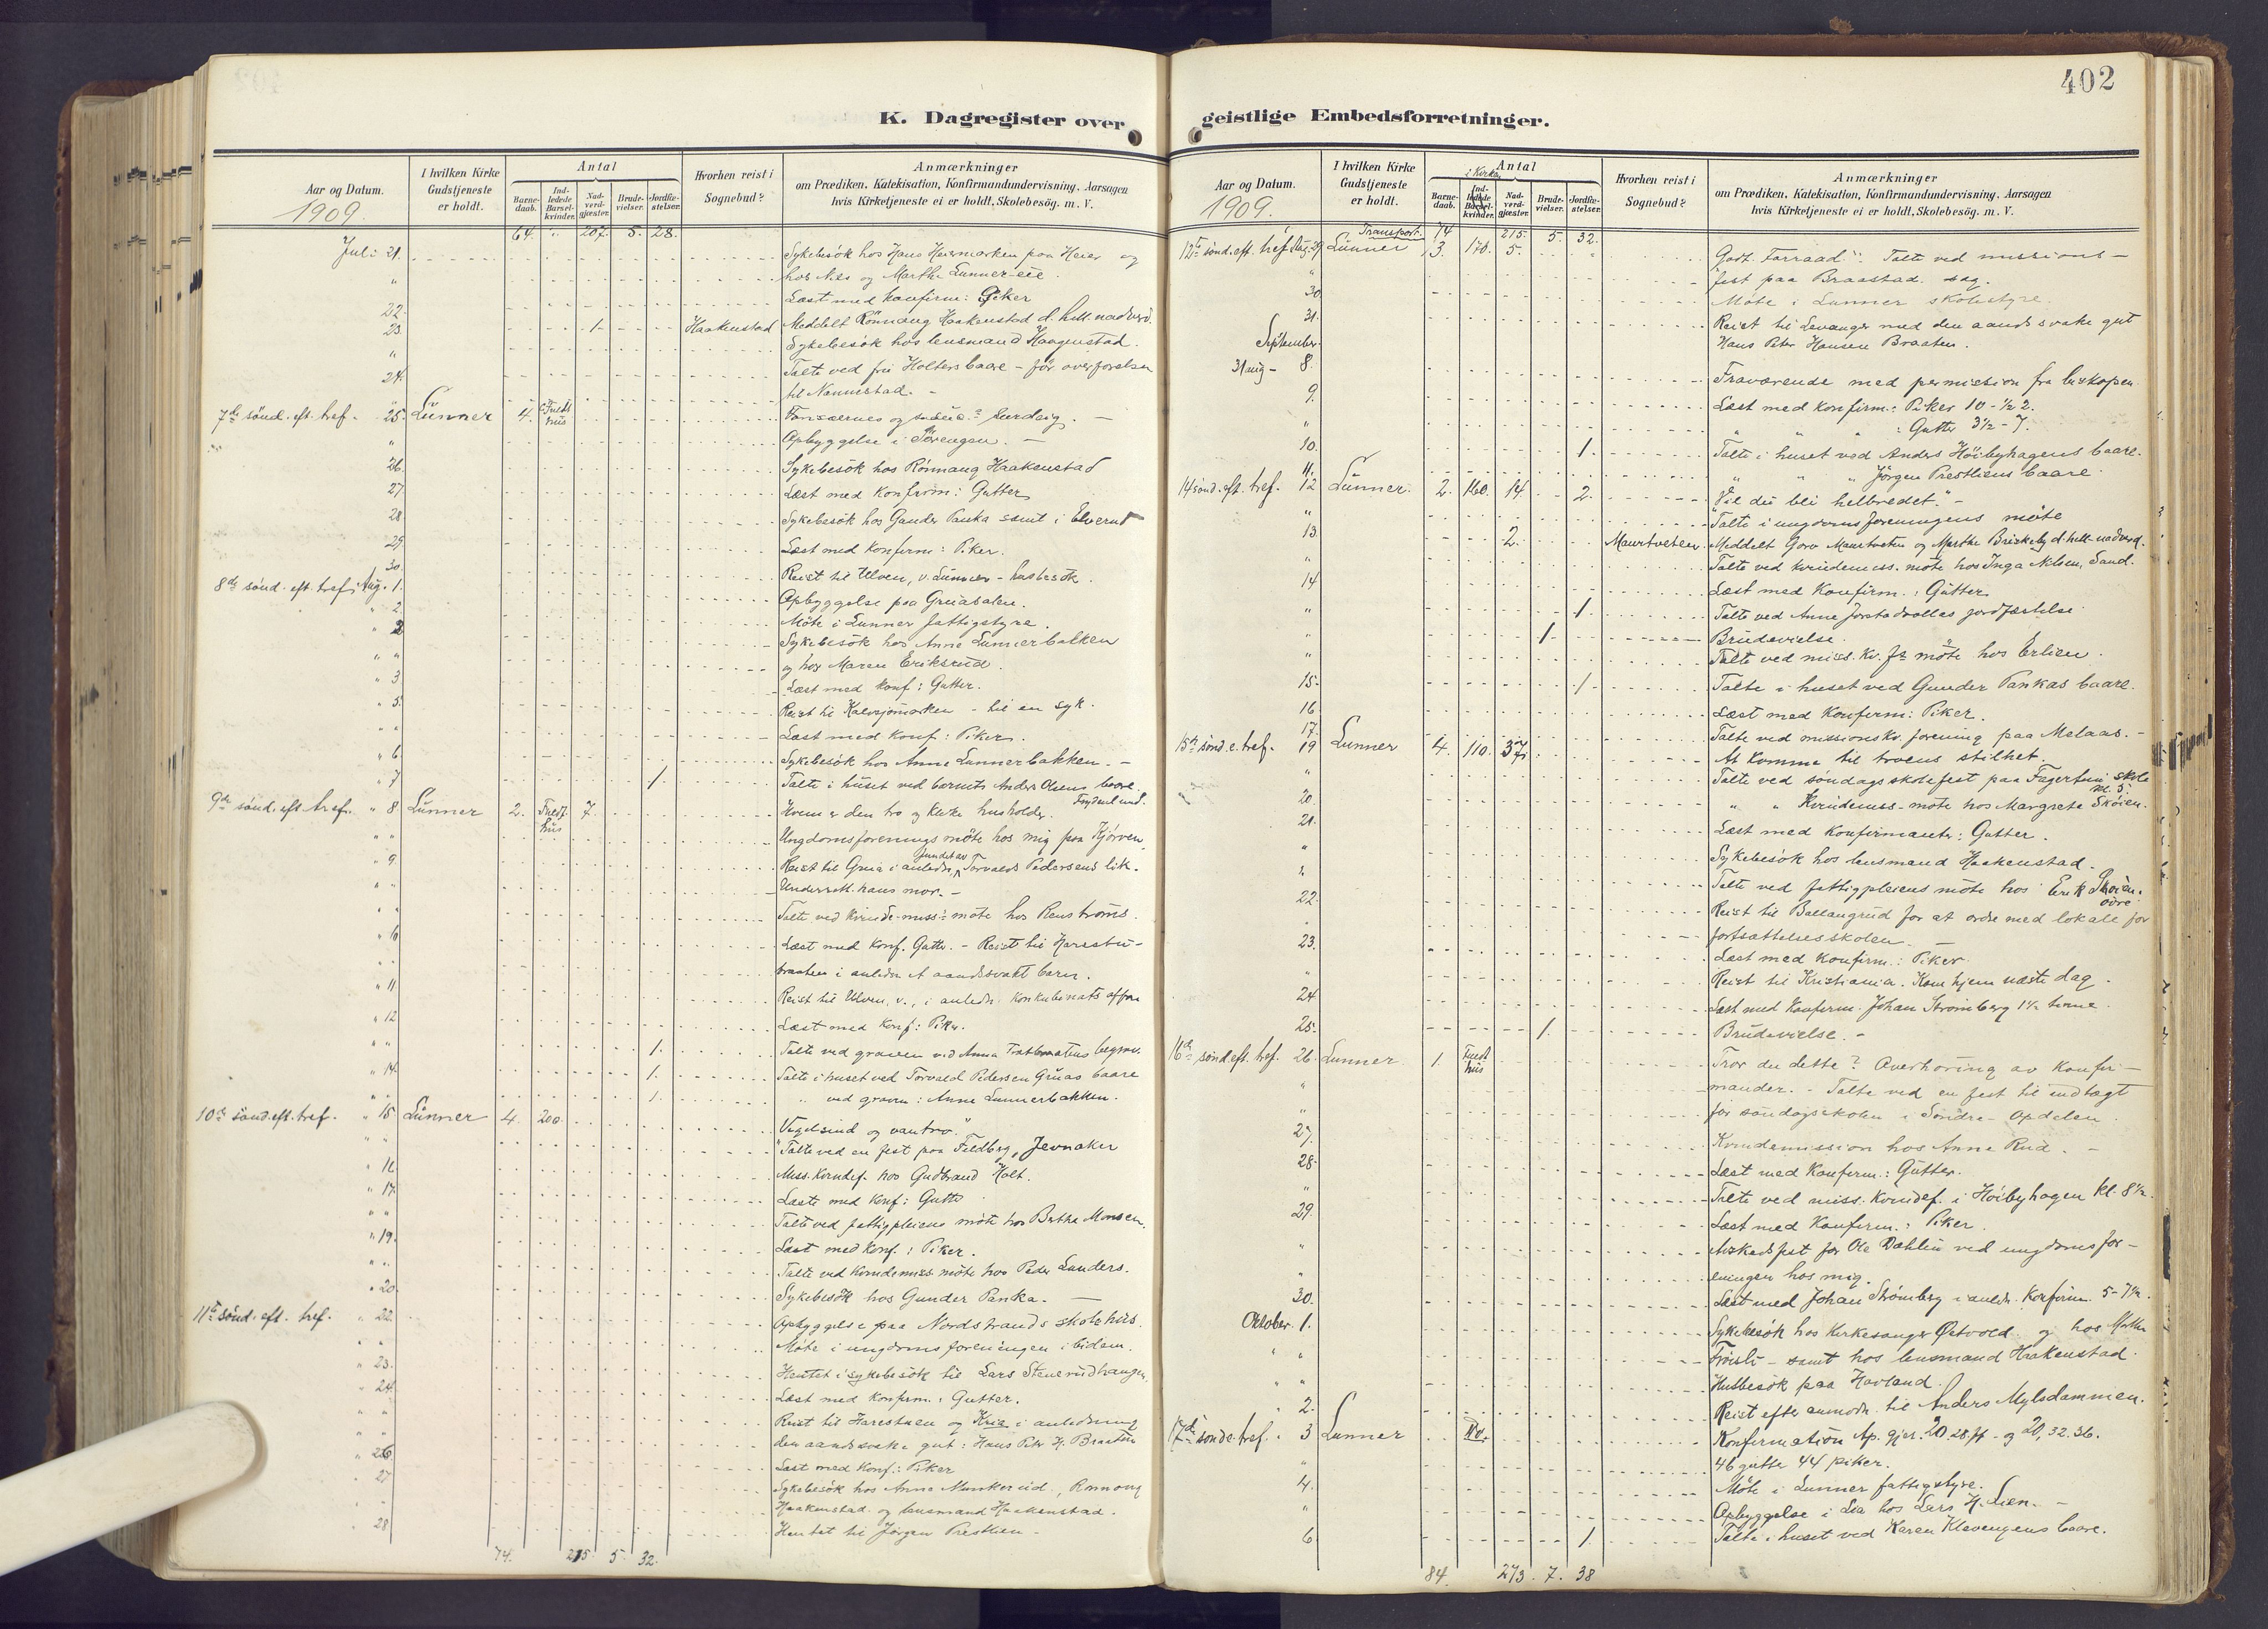 402
K. Dagregister over geistlige Embedsforretninger.
Aar og Datum. 1909.
I hvilken Kirke Gudstjeneste er holdt.
Antal
Barne-daab. Ind-ledede Barsel-kvinder. Nad-verd-gjæster. Brude-vielser. Jordfæ-stelser.
Hvorhen reist i Sognebud?
Anmærkninger
om Prædiken, Katekisation, Konfirmandundervisning, Aarsagen
hvis Kirketjeneste ei er holdt, Skolebesög. m. V.
64. " 207. 5. 28.
Juli 21. Sykebesök hos Hans Heiermarken paa Heier og
hos Nils og Marthe Lunner-eie.
" Læst med konfirm: Piker
22. 1 Haakenstad Meddelt Rönnaug Haakenstad d. hell. nadverd.
23. Sykebesök hos lensmand Haagenstad.
" Talte ved fru Holters baare - för overförelsen
24. til Nannestad. -
7de sönd. eft. tref. 25. Lunner 4. Fuldt hus
" Opbyggelse i
26. Sykebesök hos Rönnaug Haakenstad
27. Læst med Konfirm: Gutter
28. Sykebesök hos Gunder Panka samt i Elverud
29. Læst med Konfirm: Piker.
30. Reist til Ulven, v. Lunner - husbesök.
8de sönd. eft. tref. Aug. 1. Opbyggelse paa Gruasalen.
" 2. Möte i Lunner fattigstyre.
" 2 Sykebesök hos Anne Lunnerbakken
" " og hos Maren Eriksrud.
" 3 Læst med konf: Gutter.
" 5. Reist til Kalvsjömarken - til en syk.
" " Læst med Konf: Piker.
" 6 Sykebesök hos Anne Lunnerbakken. -
" 7 1. Talte i huset ved barnets Anders Olsens baare.
9de sönd. eft. tref. " 8 Lunner 2. Fuldt hus 7. Hvem er den tro og kloke husholder.
" " Ungdomsforenings möte hos mig paa Kjörven.
" 9. Reist til Grua i anledn. fundet av Torvalds Pedersens lik.
" " Underrett. hans mor. -
" " Talte ved Kvinde-miss: möte hos Renströms.
" 10 Læst med Konf. Gutter. - Reist til Harestu-
" " braaten i anledn. et aandssvakt barn.
" 11. Reist til Ulven, v., i anledn. Konkubinats affær
" 12 Læst med Konf: Piker.
" " 1. Talte ved graven ved Anna begrav.
" 14. 1. Talte i huset ved Torvald Pedersen Gruas baare
" " 1. " ved graven: Anne Lunnerbakken.
10de sönd. eft. tref. " 15 Lunner 4. 200. "Vegelsind og vantro."
" " Talte ved en fest paa Feldberg, Jevnaker
" 16. Miss. Kvindef. hos Gudbrand Holt.
" 17. Læste med Konf: Gutter
" " Talte ved fattigpleiens möte hos Berthe Monsen.
" 19. Læst med Konf: Piker.
" " Talte ved Kvindemiss. möte hos Peder Lunders.
" 20. Sykebesök hos Gunder Panka. -
11te sönd. eft. tref. " 22. Opbyggelse paa Nordstrands skolehus.
" " Möte i ungdomsforeningen ibidem.
" 23. Hentet i sykebesök til Lars Stenerudhaugen.
" 24. Læst med Konfirm: Gutter.
" " Reist til Harestuen og Kria i anledning
" " den aandssvake gut: Hans Peter H. Braaten
" 26. Læst med Konf: Piker
" 27 Sykebesök hos Anne Munkerud, Rönnaug
" " Haakenstad og lensmand Haakenstad.
" 28 Hentet til Jörgen Prestlien -
74. 215 5 32.
Aar og Datum. 1909.
I hvilken Kirke Gudstjeneste er holdt.
i Kirken Antal
Barne-daab. Ind-ledede Barsel-kvinder. Nad-verd-gjæster. Brude-vielser. Jordfæ-stelser.
Hvorhen reist i Sognebud?
Anmærkninger
om Prædiken, Katekisation, Konfirmandundervisning, Aarsagen
hvis Kirketjeneste ei er holdt, Skolebesög. m. V.
Transport. 74 215. 5. 32.
12te sönd. eft. tref. Aug. 29 Lunner 3. 170. 5. Godt Forraad". Talte ved missions-
" fest paa Braastad sag.
30 Möte i Lunner skolestyre.
31. Reist til Levanger med den aandssvake gut
September. Hans Peter Hansen Braaten.
31 aug - 8. Fraværende med permission fra biskopen.
9. Læst med Konfirm: Piker 10-½2.
" " " : Gutter 3½-7.
10. 1. Talte i huset ved Anders Höibyhagens baare.
11. " " " Jörgen Prestliens baare.
14 sönd. eft. tref. 12 Lunner. 2. 160. 14. 2. "Vil du bli helbredet." -
" Talte i ungdomsforeningens möte
13. 2. Maurtveten Meddelt Goro Maurtveten og Marthe d. hell. nadverd.
" Talte ved kvindemiss. möte hos Inga Nilsen, Sand.
14 Læst med Konfirm: Gutter
" 1 Talte ved Anne jordfæstelse.
" 1. Brudevielse.
" Talte ved miss. kv. fs möte hos Erlien.
15. 1 Talte i huset ved Gunder Pankas baare.
16 Læst med Konfirm: Piker.
17. Talte ved missionskv. forening paa Melaas. -
15de sönd. e. tref. 19 Lunner 4. 110. 37. At komme til troens stilhet.
" Talte ved söndagsskolefest paa Fagertun skole
20. " " Kvindemiss-möte hos Margrete Sköien.
21. Læst med Konfirmanter: Gutter.
" Sykebesök hos lensmand Haakenstad.
" Talte ved fattigpleiens möte hos Erik Skoien.
22. Reist til Ballangrud for at ordne med lokale for
" fortsættelsesskolen. -
23. Læst med Konfirm: Piker
" Reist til Kristiania. Kom hjem næste dag.
24. Læst med Konfirm. Johan Strömberg 1½ time.
25. 1. Brudevielse. -
16de sönd. eft. tref. 26. Lunner 1. Fuldt hus Tror du dette? Overhöring av Konfir-
" mander. - Talte ved en fest til indtægt
" for söndagsskolen i Söndre Opdalen.
27. Kvindemission hos Anne Rud. -
28. Læst med Konfirm.: Gutter.
" Talte ved miss. Kvindef. i Höibyhagen kl. 8½.
29. Læst med Konfirm.: Piker.
" Avskedsfest for Ole Dæhlin ved ungdomsfor-
" eningen hos mig.
30. Læst med Johan Strömberg i anledn. Konfirm. 5-7½.
Oktober. 1. Sykebesök hos Kirkesanger Østvold og hos Marthe
" " Fröisli - samt hos lensmand Haakenstad.
" " Husbesök paa Hovland.
" 2. Reist efter anmodn. til Anders Mylsdammen.
17de sönd. e. tref. " 3 Lunner Konfirmation Ap. gjer. 20.28 ff - og 20, 32. 36.
" 46 gutter 44 piker.
4. Möte i Lunner fattigstyre.
" Opbyggelse i Lia hos Lars H. Lien. -
6 1. Talte i huset ved Karen Klevengens baare.
84. 273. 7. 38